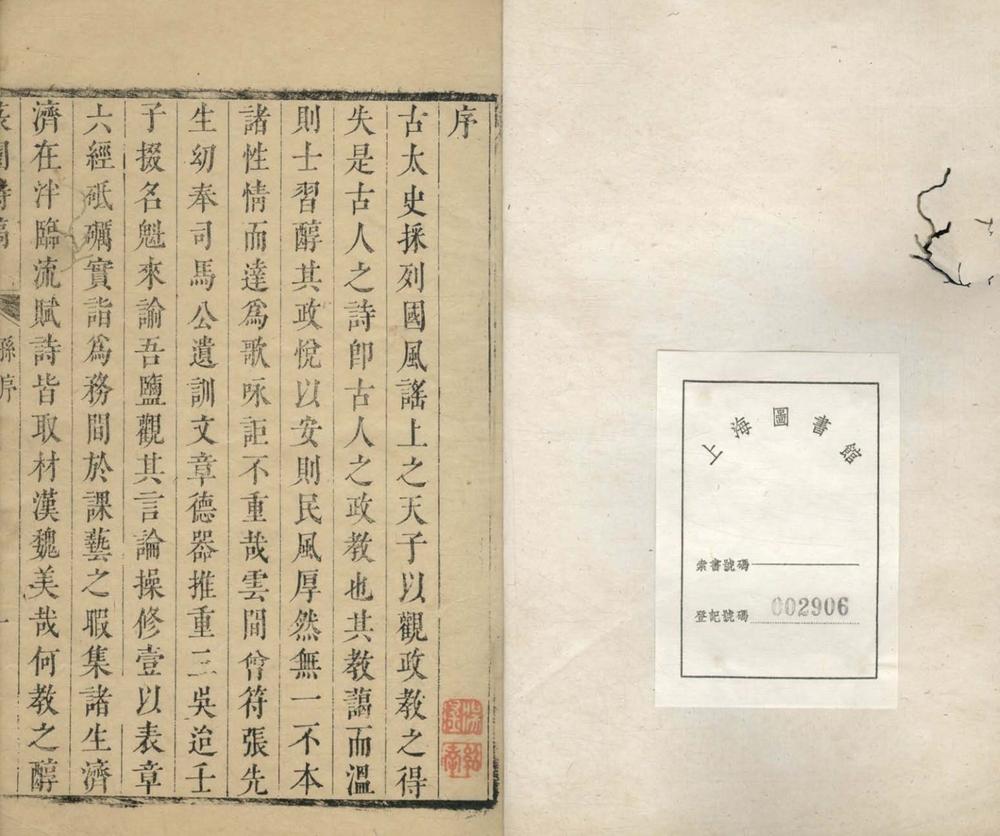 序
古太史採列國風謠上之天子以觀政教之得
失是古人之詩卽古人之政教也其教藹而溫
則士習醇其政悅以安則民風厚然無一不本
諸性情而達爲歌咏詎不重哉雲間曾符張先
生幼奉司馬公遺訓文章德器推重三吳迨壬
子掇名魁來諭吾鹽觀其言論操修壹以表章
六經砥礪實詣爲務間於課藝之暇集諸生濟
濟在泮臨流賦詩皆取材漢魏美哉何教之醇
孫序
一
上海圖書館
索書號碼
登記號碼 002906